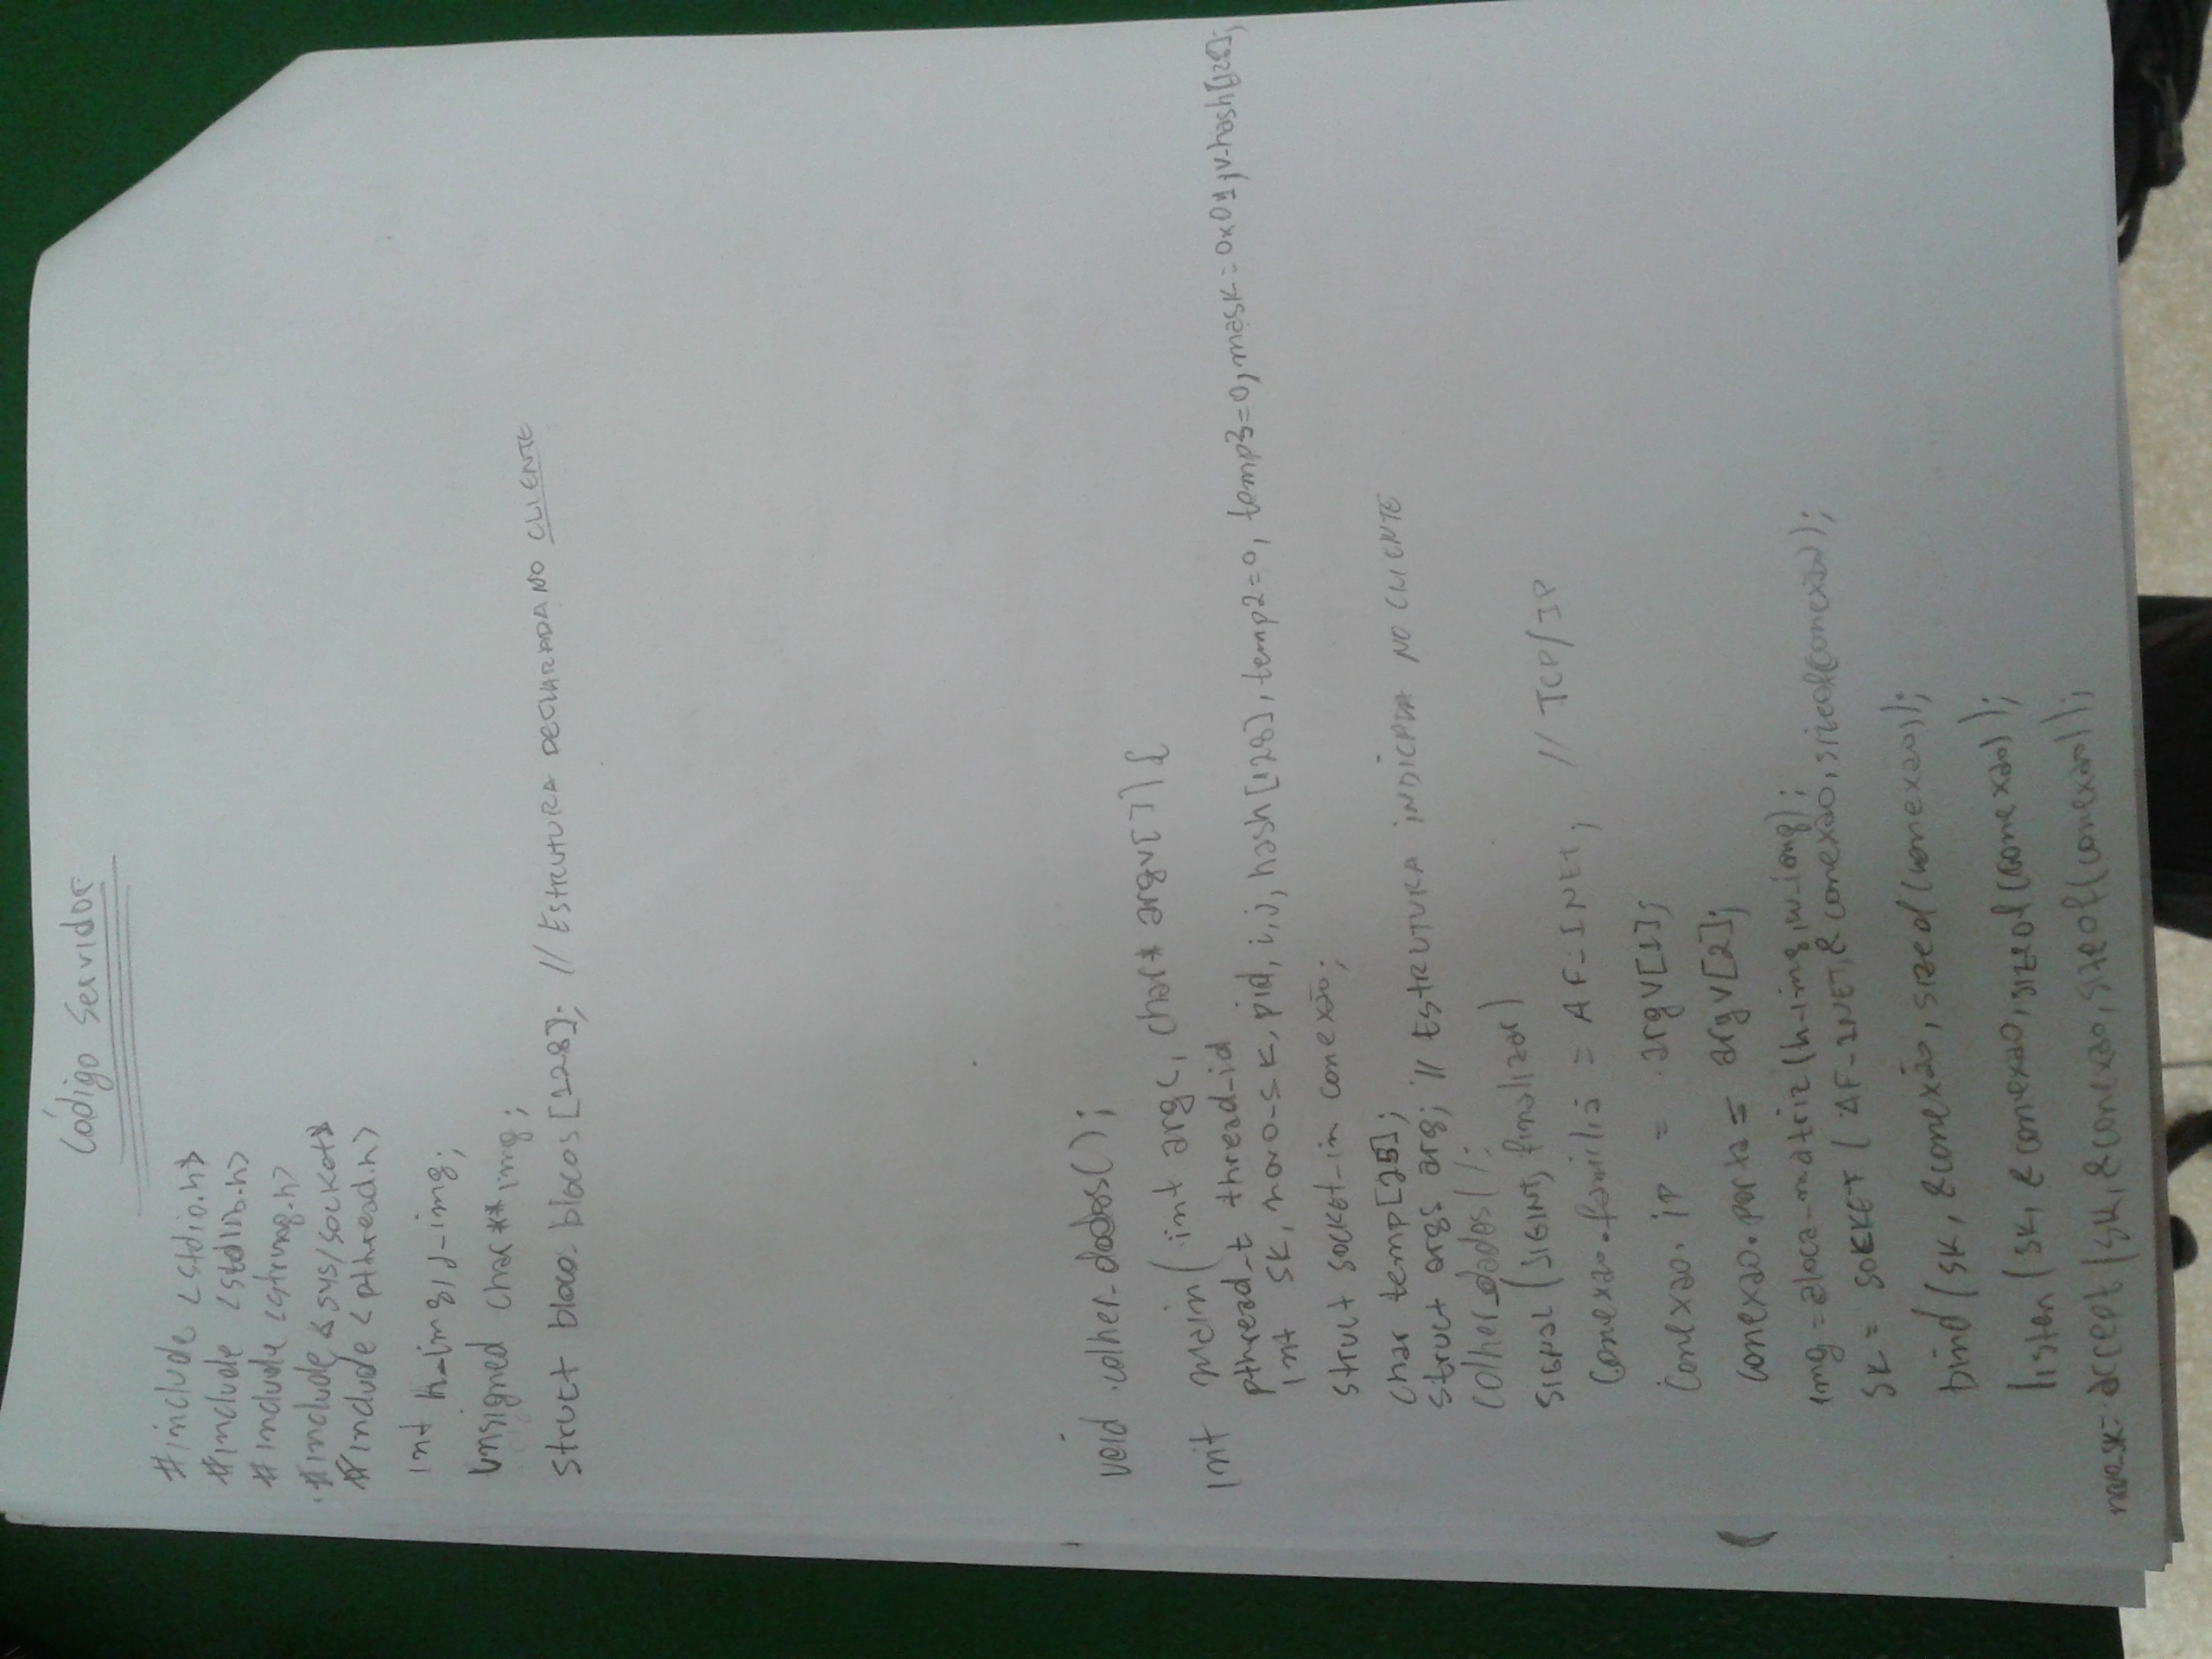 Código Servidor
#include <stdio.h>
#include <stdlib.h>
#include <string.h>
#include <sys/socket>
#include <pthread.h>
int h_img, j_img;
unsigned char** img;
struct bloco blocos[128]; // ESTRUTURA DECLARADA NO CLIENTE
void colher_dados();
int main(int argc, char* argv[]){
pthread_t thread_id
int sk, novo_sk, pid, i, j, hash[128], temp2=0, temp3=0, mask=0x01, v_hash[128];
struct socket_in conexão;
char temp[25];
struct args arg; // ESTRUTURA INDICADA NO CLIENTE
colher_dados();
SIGNAL(SIGINT, finalizar)
Conexao.familia = AF_INET; // TCP/IP
Conexao.ip = argv[1];
conexao.porta = argv[2];
img = aloca_matriz(h_img, w_img);
SK = SOCKET(AF_INET, &conexão, sizeof(conexão));
bind(SK, &conexão, sizeof(conexao));
listen(SK, &conexao, sizeof(conexao));
novo_sk= accept(SK, &conexao, sizeof(conexao));